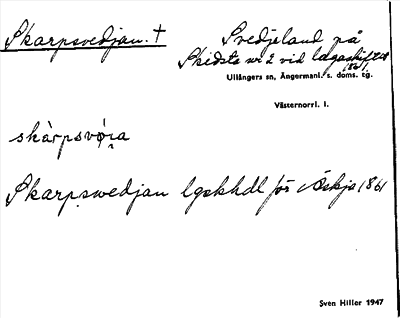 Skarpsvedjan. †
Svedjeland på
Skidsta nr 2 vid lagaskiftet
1861
Ullångers sn, Ångermanl:s s. doms. tg.
Västernorrl. l.
skàrpsvø̣ṛa
Skarpswedjan lgskhdl för Äskja 1861
Sven Hiller 1947